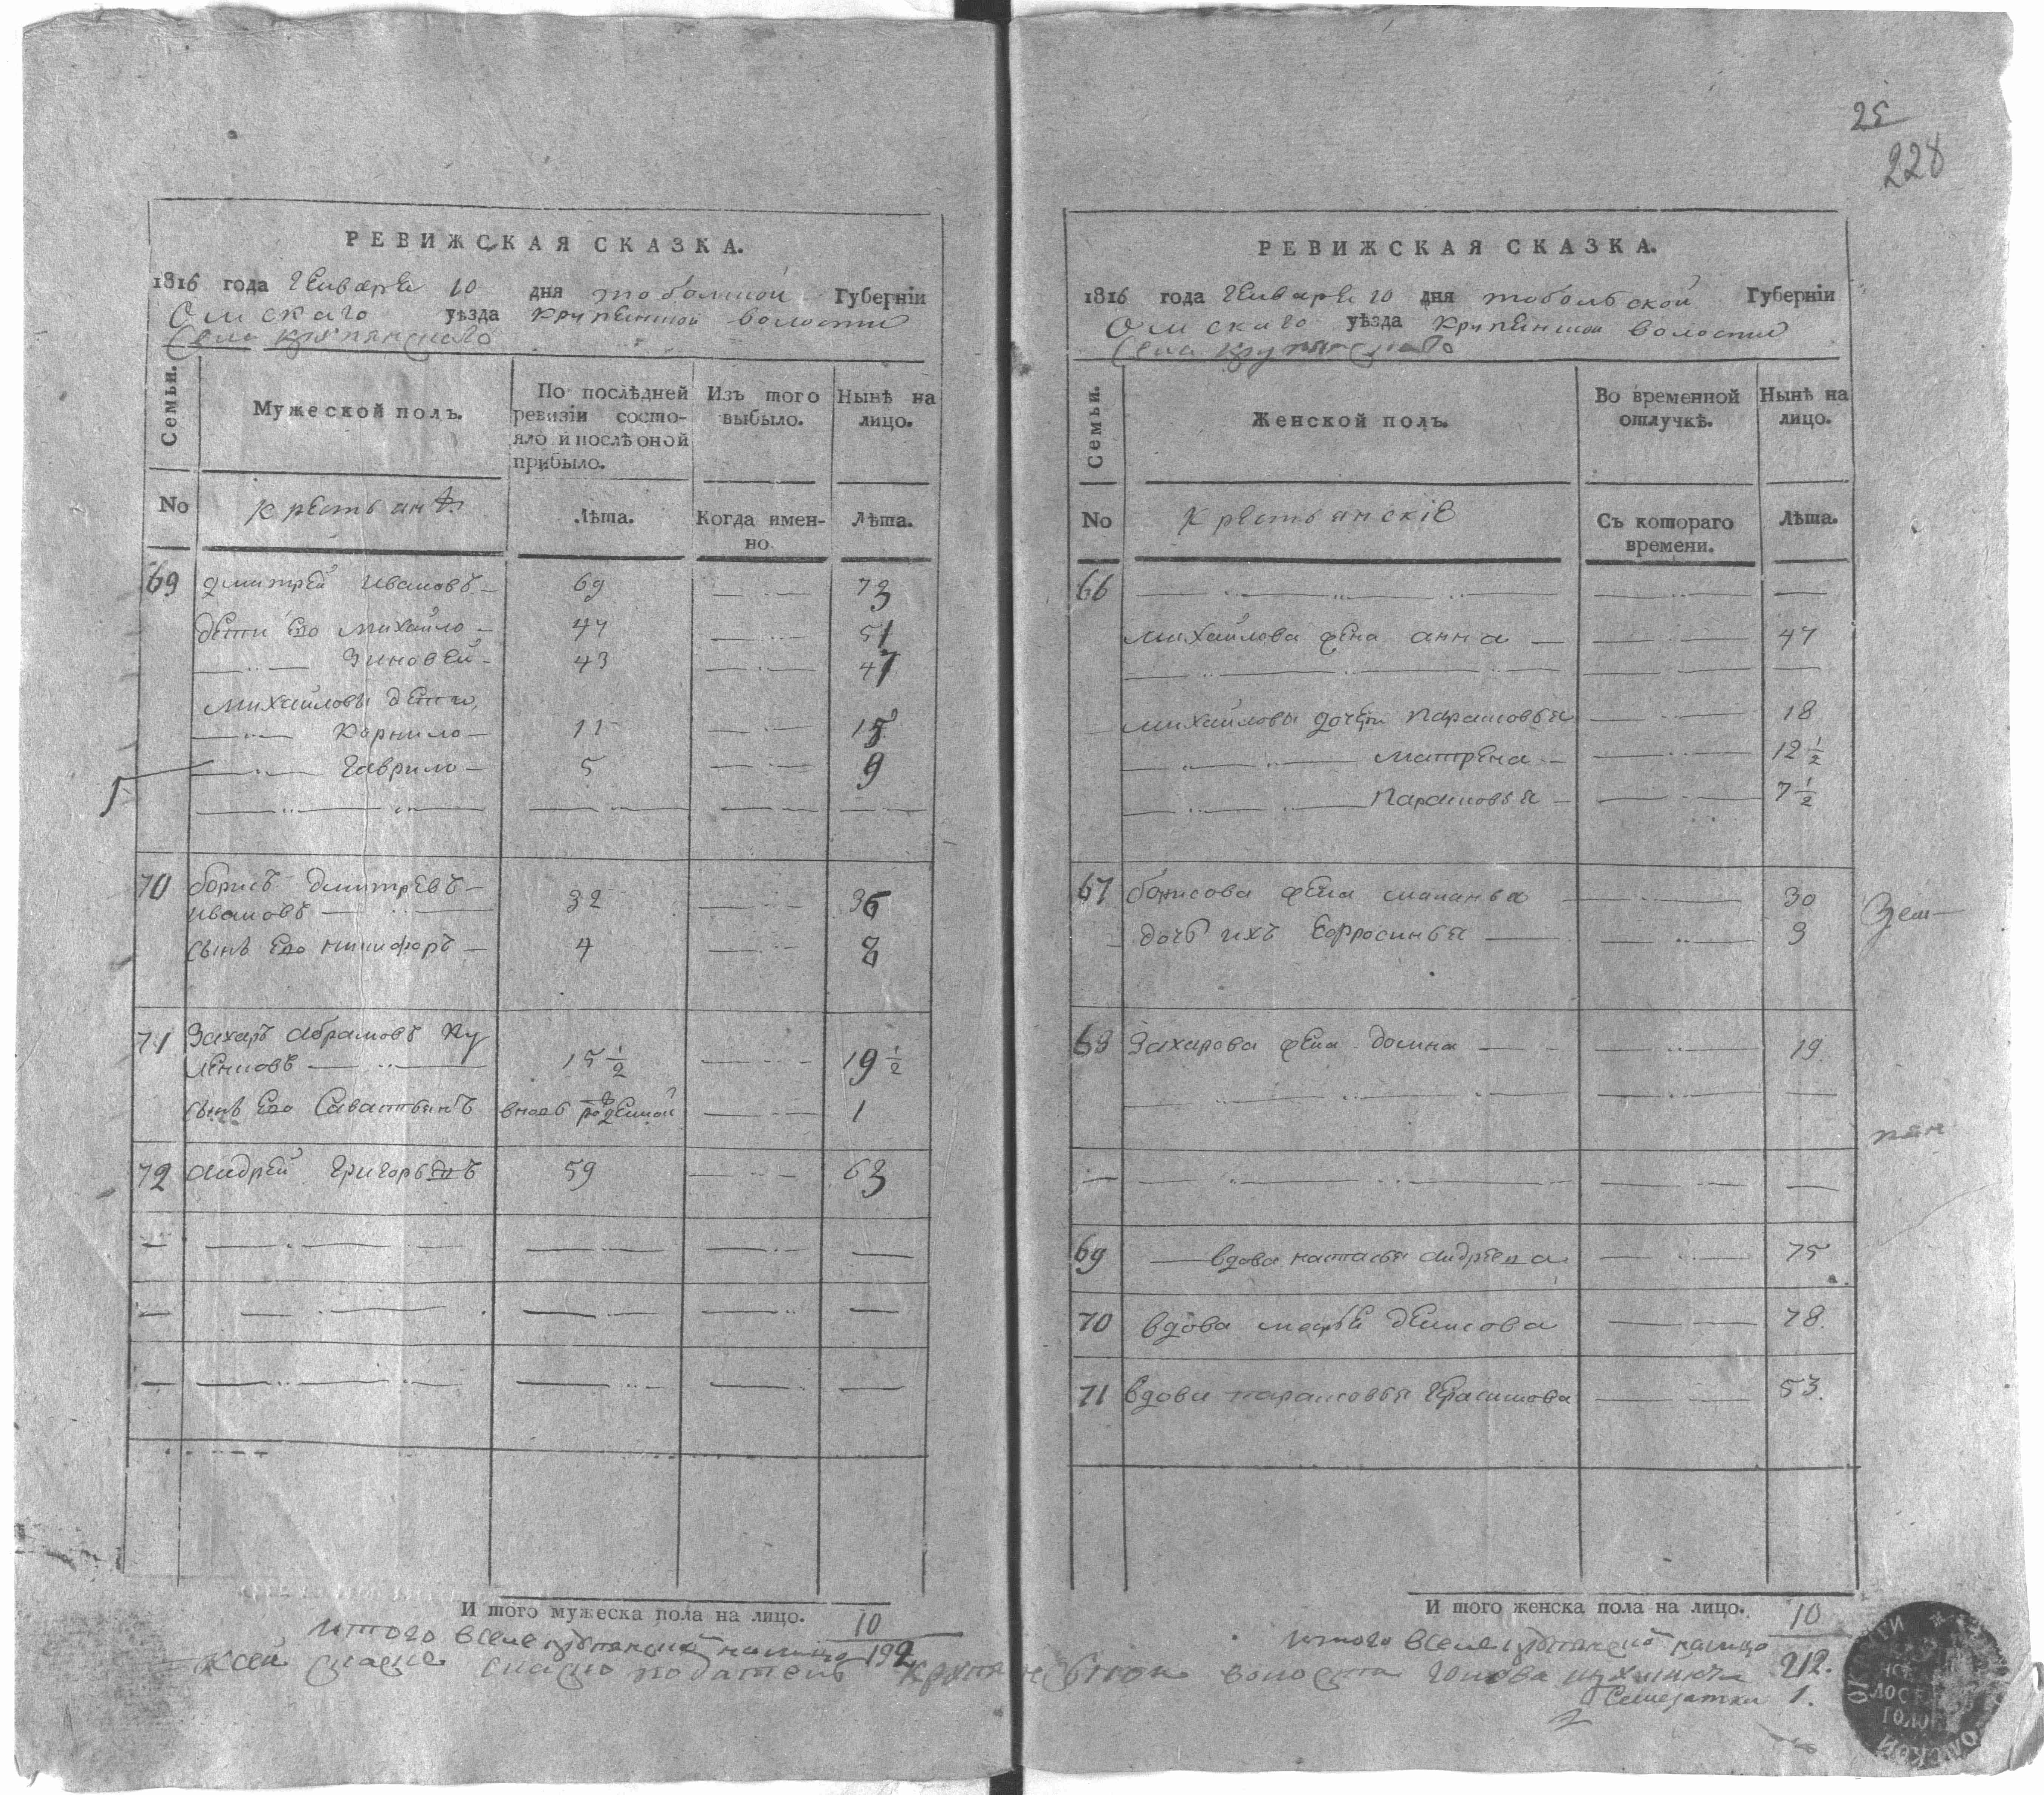 25
228
РЕВИЖСКАЯ СКАЗКА.
1816 года Генваря 10 дня тобольской Губернїи
Омскаго уѣзда крупенской волости
Села крупянскаго
Семьи.
Мужеской полъ.
По послѣдней ревизїи состо-
яло и послѣ оной
прибыло.
Изъ того выбыло.
Нынѣ на лицо.
No
крестьянъ
Лѣта.
Когда имен-
но.
Лѣта.
69 дмитрей ивановъ 69 73
дети Его михайло 47 51
Зиновей 43 47
михайловы дети
Карнило 11 15
Гаврило 5 9
70 борисъ дмитревъ
ивановъ 32 36
сынъ Его никифоръ 4 8
71 Захаръ абрамовъ Ку
ленковъ 15 1/2 19 1/2
сынъ Его Саватьянъ вновь рожденной 1
72 андрей григорьевъ 59 63
И того мужеска пола на лицо. 10
итого вселе крупянской налицо 192
РЕВИЖСКАЯ СКАЗКА.
1816 года Генваря 10 дня тобольской Губернїи
Омскаго уѣзда крупенской волости
Села крупянскаго
Семьи.
Женской полъ.
Во временной отлучкѣ.
Нынѣ на лицо.
No
Крестьянскіе
Съ котораго
времени.
Лѣта.
66
михайлова жена анна 47
михайловы дочери парасковья 18
матрена 12 1/2
парасковья 7 1/2
67 борисова жена маланья 30
дочь ихъ Ефросинья 9
68 Захарова жена домна 19
69 вдова настасья андреева 75
70 вдова марья денисова 78.
71 вдова парасковья Герасимова 53.
И того женска пола на лицо. 10
итого вселе крупянской налицо 212.
волости голова
1.
Зем